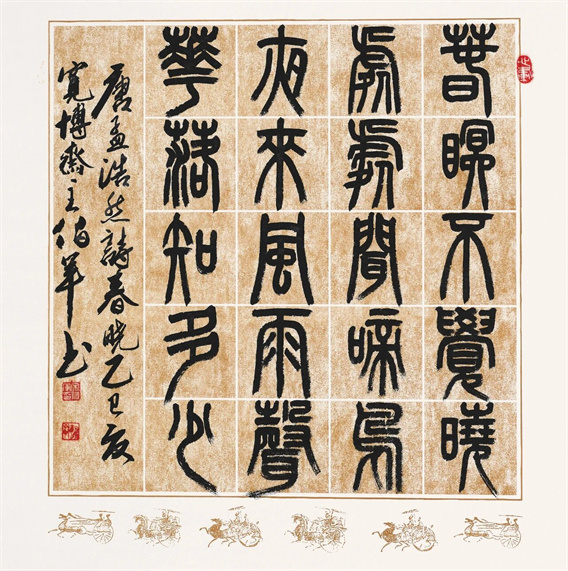 春眠不覺曉
處處聞啼鳥
夜來風雨聲
華落知多少
唐孟浩然詩春曉乙巳
寬博齋主伯軍书